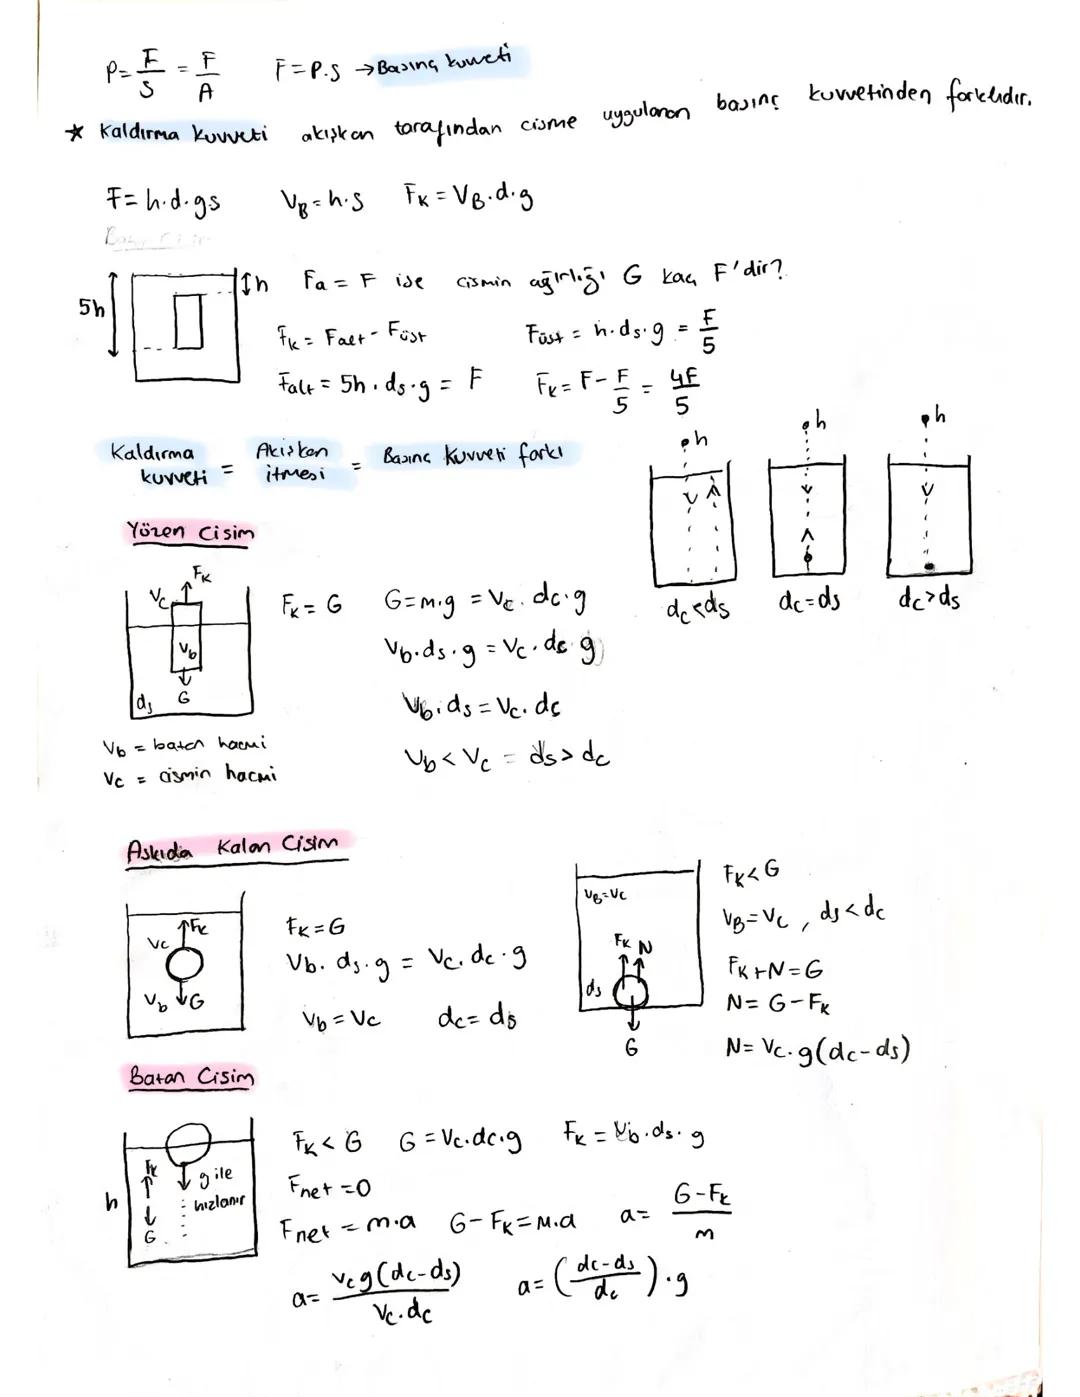 P=F/S = F/A F=P.S → Basınç kuvveti
* Kaldırma kuvveti akışkan tarafından cisme uygulanan basınç kuvvetinden farklıdır.
F= h.d.gs VB = h.s FK = VB.d.g
5h h Fa = F ise cismin ağırlığı G kaç F'dir?
FK = Falt - Füst Füst = h.ds.g = F/5
Falt = 5h.ds.g = F FK = F - F/5 = 4F/5
Kaldırma kuvveti = Akışkan itmesi = Basınç kuvveti farkı
h h h
dc<ds dc=ds dc>ds
Yüzen Cisim
Vc FK Vb G ds
FK = G G=m.g = Vc.dc.g
Vb.ds.g = Vc.dc.g
Vb.ds = Vc.dc
Vb < Vc = ds > dc
Vb = batan hacmi
Vc = cismin hacmi
Askıda Kalan Cisim
Vc FK Vb G
FK=G
Vb.ds.g = Vc.dc.g
Vb = Vc dc = ds
VB=Vc FK N ds G
FK<G
VB=Vc, ds<dc
FK+N=G
N= G-FK
N= Vc.g(dc-ds)
Batan Cisim
h FK G g ile hızlanır
FK < G G = Vc.dc.g FK = Vb.ds.g
Fnet =0
Fnet = m.a G-FK=m.a a= G-FK/m
a= Vcg(dc-ds)/Vc.dc a= (dc-ds/dc).g